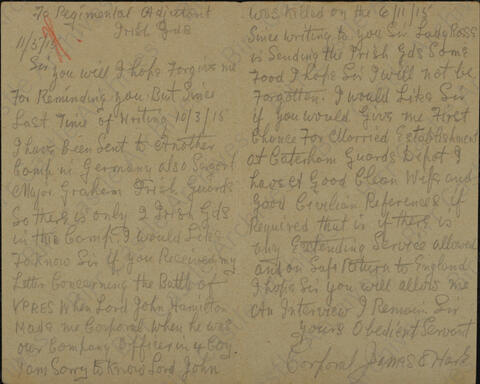 To Regimental Adjutant
Irish Gds
11/5/15
Sir you will I hope Forgive me
For Reminding you But Since
Last Time of Writing 10/3/15
I have Been Sent to Another
Camp in Germany also Sergent
Major Graham Irish Guards
So there is only 2 Irish Gds
in this Camp. I would Like
To Know Sir if you Received my
Letter Concerning the Battle of
YPRES When Lord John Hamilton
Made me Corporal when he was
our Company Officer in 4 Coy
I am Sorry to Know Lord John
was Killed on the 6/11/15
Since writing to you Sir Lady Ross
is Sending the Irish Gds Some
Food I hope Sir I will not be
Forgotten. I would Like Sir
if you would Give me First
Chance For Married Establishment
at Caterham Guards Depot I
have a Good Clean Wife and
Good Civilian References if
Required that is if there is
any Extending Service allowed
and on Safe Return to England
I hope Sir you will allow me
An Interview I Remain Sir
Yours Obedient Servent
Corporal James